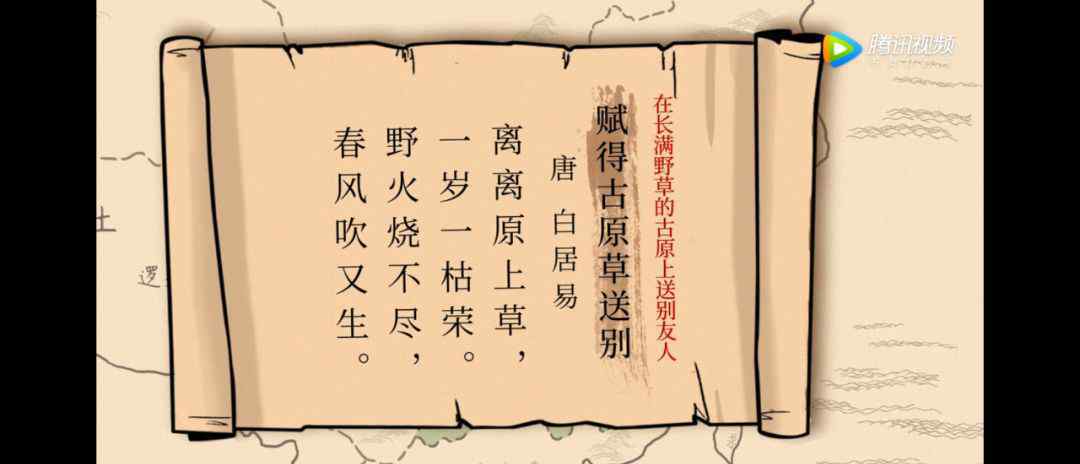 在长满野草的古原上送别友人
赋得古原草送别
唐 白居易
离离原上草，
一岁一枯荣。
野火烧不尽，
春风吹又生。
腾讯视频
土
逻